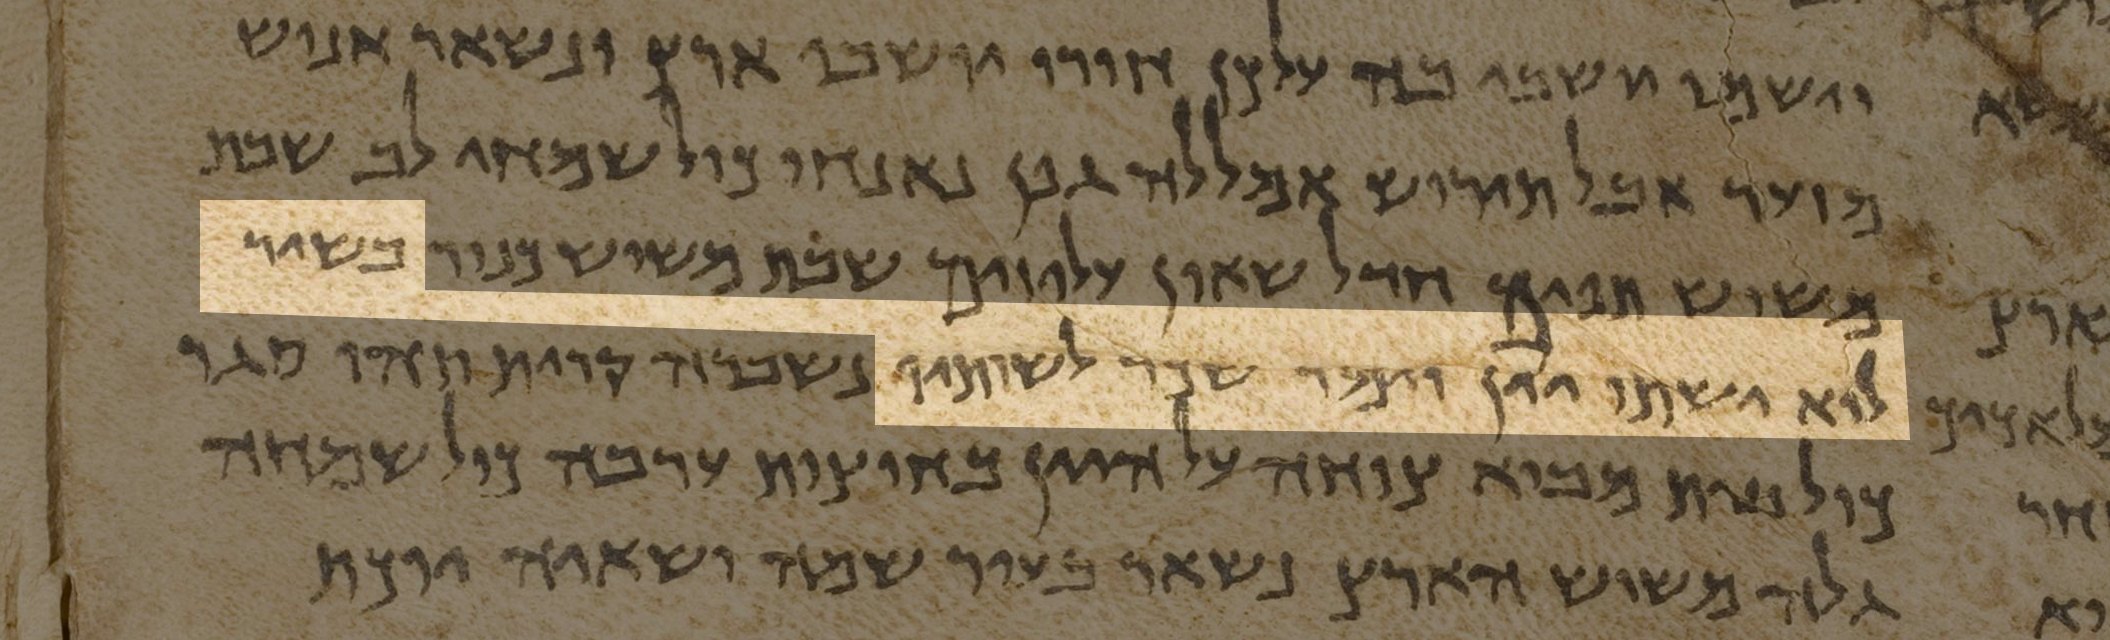 וישמו ישבי בה על כן חורו יושבי ארץ ונשאר אנוש
מזער אבל תירוש אמללה גפן נאנחו כול שמחי לב שבת
משוש תופים חדל שאון עליזים שבת משוש כנור בשיר
לוא ישתו יין וימר שכר לשותיו נשברה קרית תוהו סגר
כול בית מבוא צוחה על היין בחוצות ערבה כול שמחה
גלה משוש הארץ נשאר בעיר שמה ושאיה יוכת